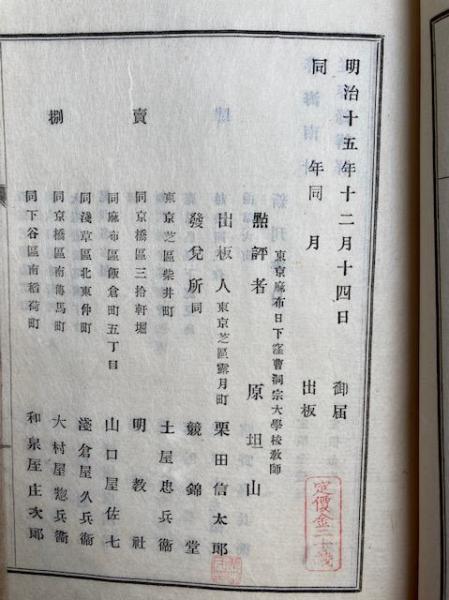 明治十五年十二月十四日 御届
同 年同 月 出板
東京麻布日下窪曹洞宗大學校教師
㸃評者 原坦山
出板人 東京芝區露月町 栗田信太郎
發兌所 同 競錦堂
東京芝區柴井町 土屋忠兵衞
賣 同京橋區三拾軒堀 明教社
同麻布區飯倉町五丁目 山口屋佐七
同淺草區北東仲町 淺倉屋久兵衞
捌 同京橋區南傳馬町 大村屋惣兵衞
同下谷區南稲荷町 和泉屋庄次郎
定價金二十錢